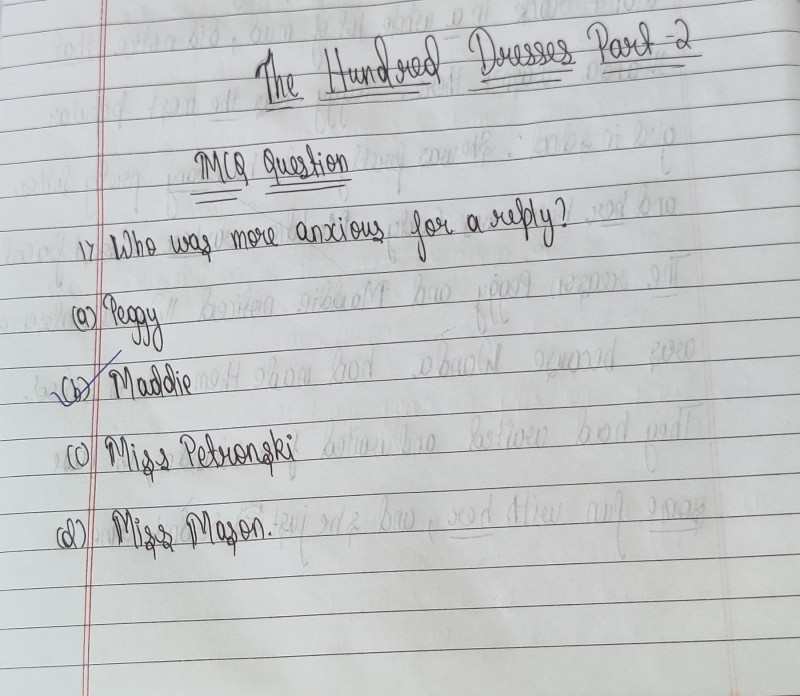 The Hundred Dresses Part-2
MCQ Question
1) Who was more anxious for a reply?
(a) Peggy
(b) Maddie
(c) Miss Petronski
(d) Miss Mason.